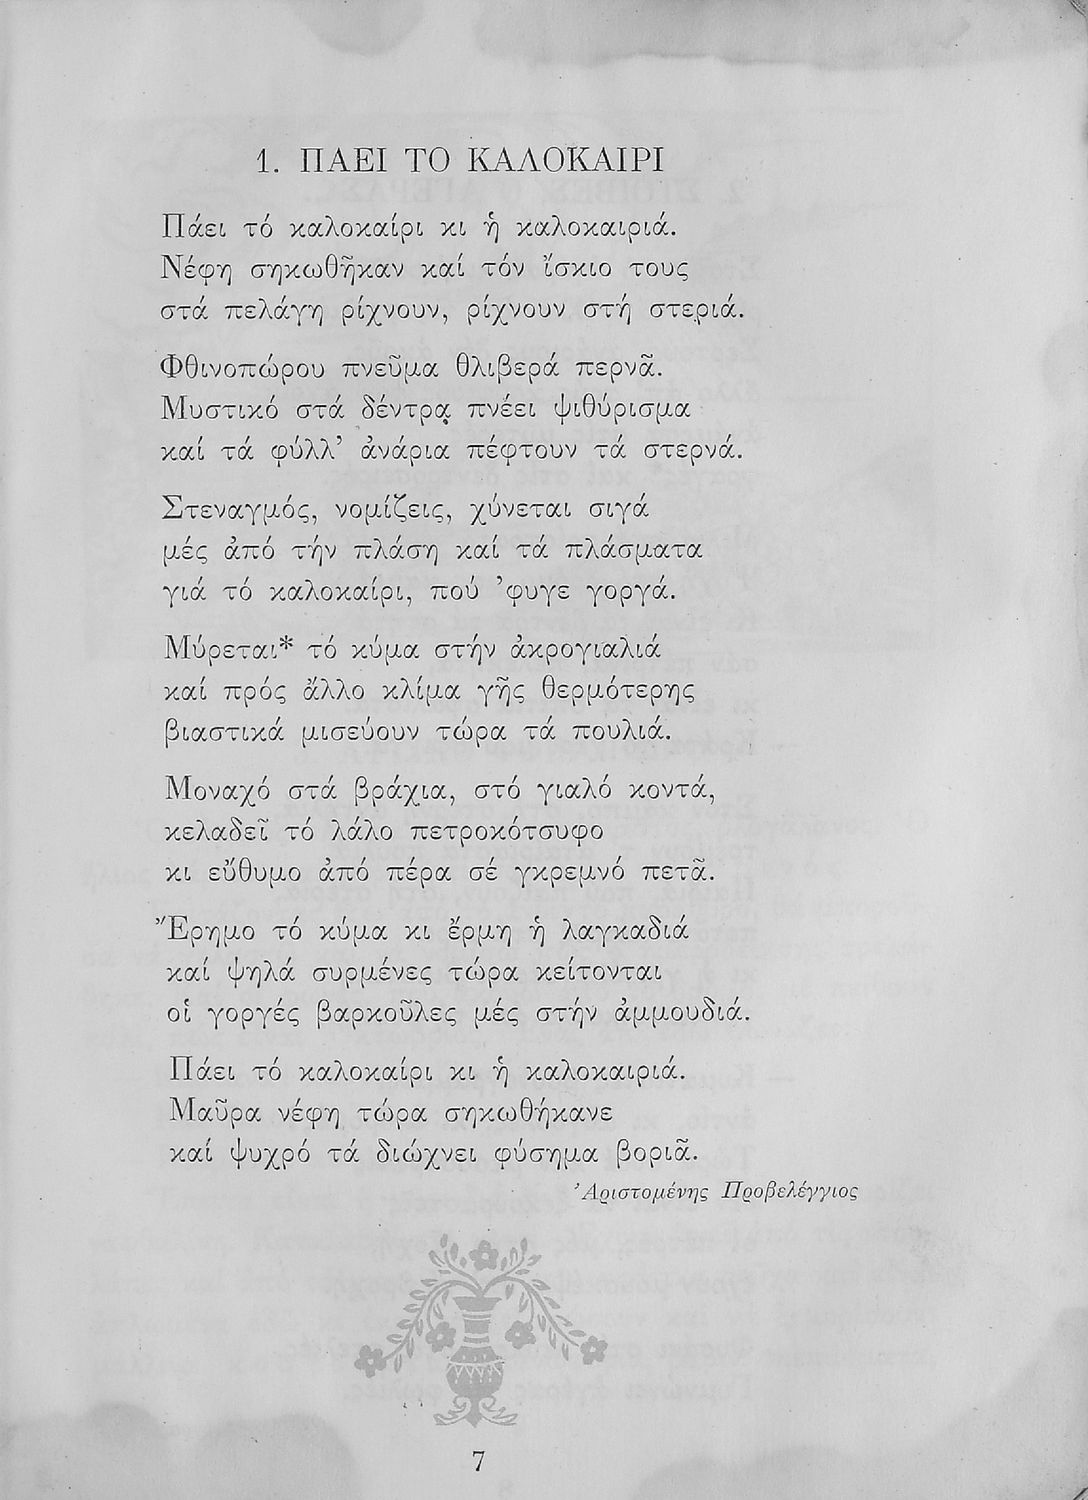 1. ΠΑΕΙ ΤΟ ΚΑΛΟΚΑΙΡΙ
Πάει τό καλοκαίρι κι ἡ καλοκαιριά.
Νέφη σηκωθῆκαν καί τόν ἴσκιο τους
στά πελάγη ρίχνουν, ρίχνουν στή στεριά.
Φθινοπώρου πνεῦμα θλιβερά περνᾶ.
Μυστικό στά δέντρα πνέει ψιθύρισμα
καί τά φύλλ’ ἀνάρια πέφτουν τά στερνά.
Στεναγμός, νομίζεις, χύνεται σιγά
μές ἀπό τήν πλάση καί τά πλάσματα
γιά τό καλοκαίρι, πού ’φυγε γοργά.
Μύρεται* τό κύμα στήν ἀκρογιαλιά
καί πρός ἄλλο κλίμα γῆς θερμότερης
βιαστικά μισεύουν τώρα τά πουλιά.
Μοναχό στά βράχια, στό γιαλό κοντά,
κελαδεῖ τό λάλο πετροκότσυφο
κι εὔθυμο ἀπό πέρα σέ γκρεμνό πετᾶ.
Ἔρημο τό κύμα κι ἔρμη ἡ λαγκαδιά
καί ψηλά συρμένες τώρα κείτονται
οἱ γοργές βαρκοῦλες μές στήν ἀμμουδιά.
Πάει τό καλοκαίρι κι ἡ καλοκαιριά.
Μαῦρα νέφη τώρα σηκωθήκανε
καί ψυχρό τά διώχνει φύσημα βοριᾶ.
Ἀριστομένης Προβελέγγιος
7